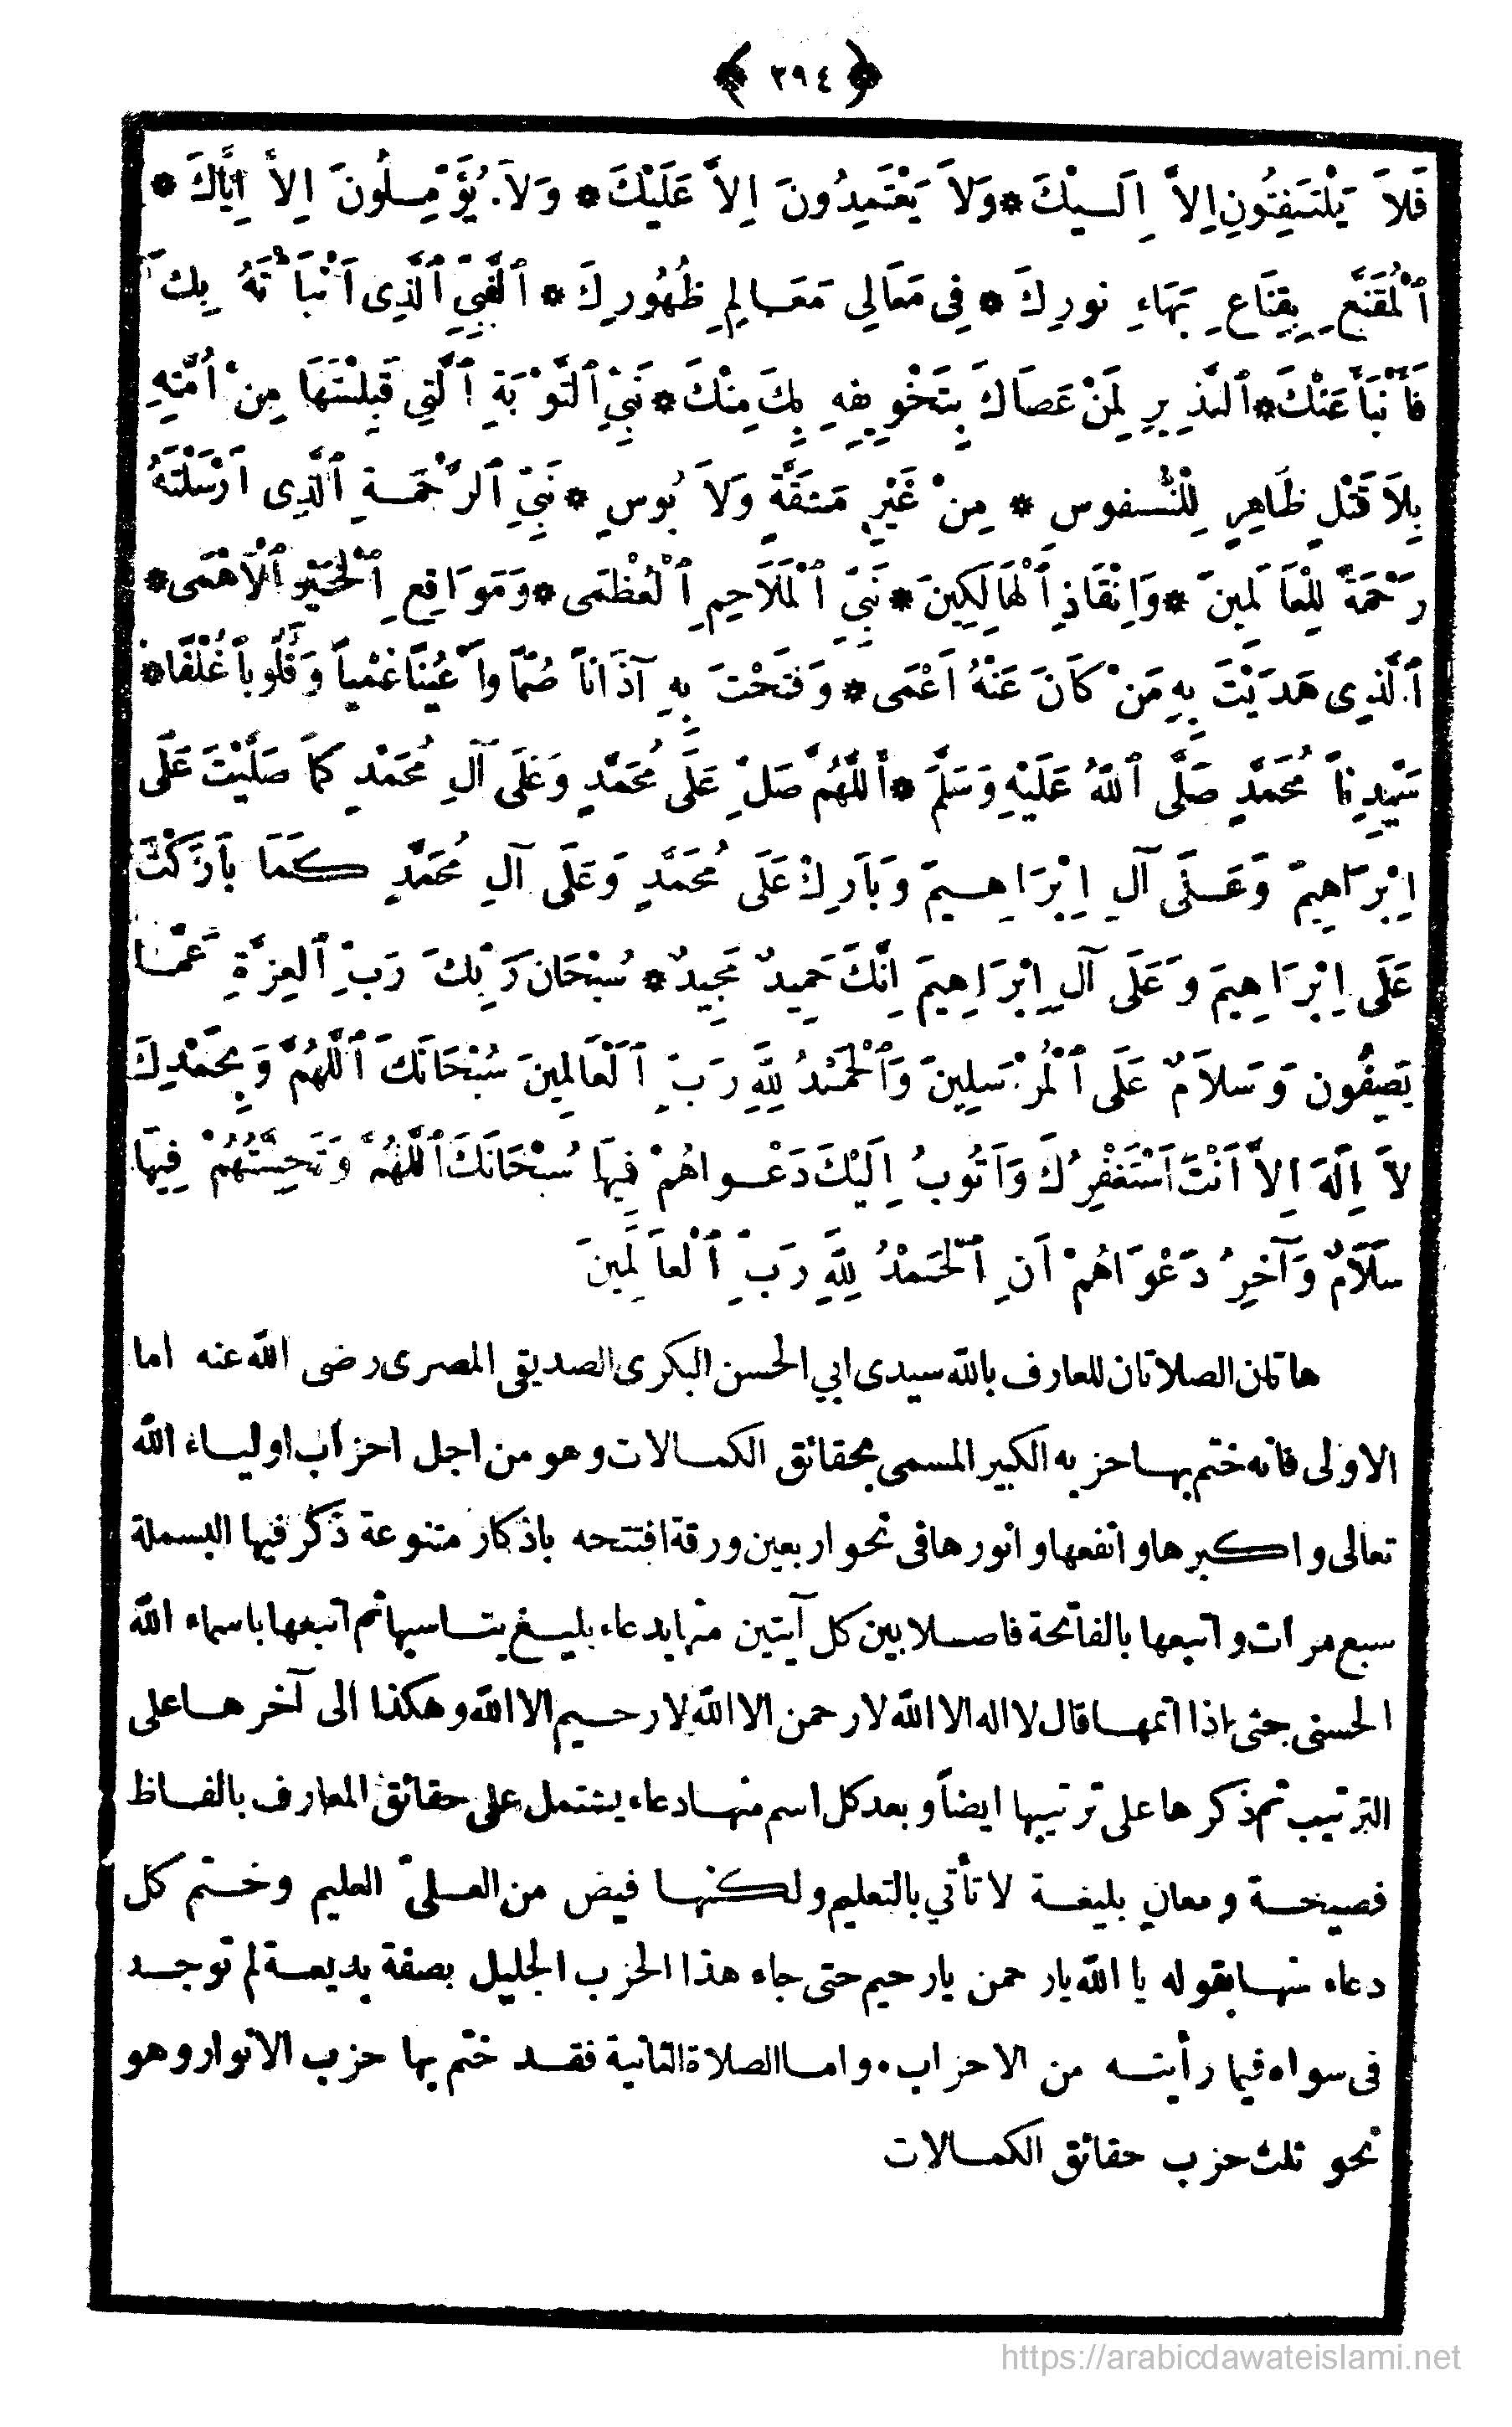 ﴿ ٣٩٤ ﴾
فَلاَ يَلْتَفِتُونِ اِلاَّ اِلَيْكَ * وَلاَ يَعْتَمِدُونَ اِلاَّ عَلَيْكَ * وَلاَ يُؤَمِّلُونَ اِلاَّ اِيَّاكَ *
ٱلْمُقَنَّعِ بِقِنَاعِ بَهَاءِ نورِكَ * فِى مَعَالِى مَعَالِمِ ظُهُورِكَ * ٱلنَّبِيِّ ٱلَّذِى اَنْبَأْتَهُ بِكَ
فَأَنْبَأَ عَنْكَ * ٱلنَّذِيرِ لِمَنْ عَصَاكَ بِتَخْوِيفِهِ بِكَ مِنْكَ * نَبِيِّ ٱلتَّوْبَةِ ٱلَّتِي قَبِلْتَهَا مِنْ اُمَّتِهِ
بِلاَ قَتْلٍ ظَاهِرٍ لِلنُّفوس * مِنْ غَيْرِ مَشَقَّةٍ وَلاَ بُوسٍ * نَبِيِّ ٱلرَّحْمَةِ ٱلَّذِى اَرْسَلْتَهُ
رَحْمَةً لِلْعَالَمِينَ * وَاِنْقَاذِ ٱلْهَالِكِينَ * نَبِيِّ ٱلْمَلَاحِمِ ٱلْعُظْمَى * وَمَوَاقِعِ ٱلْخَيْرِ ٱلْأَهْمَى *
ٱلَّذِى هَدَيْتَ بِهِ مَنْ كَانَ عَنْهُ اَعْمَى * وَفَتَحْتَ بِهِ آذَاناً صُمّاً وَأَعْيُناً عُمْياً وَقُلُوباً غُلْفاً *
سَيِّدِنَا مُحَمَّدٍ صَلَّى ٱللَّهُ عَلَيْهِ وَسَلَّمَ * أَللَّهُمَّ صَلِّ عَلَى مُحَمَّدٍ وَعَلَى آلِ مُحَمَّدٍ كَمَا صَلَّيْتَ عَلَى
اِبْرَاهِيمَ وَعَلَى آلِ اِبْرَاهِيمَ وَبَارِكْ عَلَى مُحَمَّدٍ وَعَلَى آلِ مُحَمَّدٍ كَمَا بَارَكْتَ
عَلَى اِبْرَاهِيمَ وَعَلَى آلِ اِبْرَاهِيمَ اِنَّكَ حَمِيدٌ مَجِيدٌ * سُبْحَانَ رَبِّكَ رَبِّ ٱلعِزَّةِ عَمَّا
يَصِفُون وَسَلاَمٌ عَلَى ٱلْمُرْسَلِينَ وَٱلْحَمْدُ لِلَّهِ رَبِّ ٱلْعَالَمِينَ سُبْحَانَكَ ٱللَّهُمَّ وَبِحَمْدِكَ
لاَ اِلَهَ اِلاَّ اَنْتَ اَسْتَغْفِرُكَ وَاَتُوبُ اِلَيْكَ دَعْوَاهُمْ فِيهَا سُبْحَانَكَ ٱللَّهُمَّ وَتَحِيَّتُهُمْ فِيهَا
سَلَامٌ وَآخِرُ دَعْوَاهُمْ اَنِ ٱلْحَمْدُ لِلَّهِ رَبِّ ٱلْعَالَمِينَ
هاتان الصلاتان للعارف بالله سيدى ابي الحسن البكرى الصديقى المصرى رضى الله عنه اما
الاولى فانه ختم بها حزبه الكبير المسمى بحقائق الكمالات وهو من اجل احزاب اولياء الله
تعالى واكبرها وانفعها وانورها فى نحو اربعين ورقة افتتحه باذكار متنوعة ذكر فيها البسملة
سبع مرات واتبعها بالفاتحة فاصلا بين كل آيتين منها بدعاء بليغ يناسبها ثم اتبعها باسماء الله
الحسنى حتى اذا اتمها قال لا اله الا الله لا رحمن الا الله لا رحيم الا الله وهكذا الى آخرها على
الترتيب ثم ذكرها على ترتيبها ايضاً وبعد كل اسم منها دعاء يشتمل على حقائق المعارف بالفاظ
فصيحة ومعانٍ بليغة لا تأتي بالتعليم ولكنها فيض من العلىّ العليم وختم كل
دعاء منها بقوله يا الله يا رحمن يا رحيم حتى جاء هذا الحزب الجليل بصفة بديعة لم توجد
فى سواه فيما رأيته من الاحزاب . واما الصلاة الثانية فقد ختم بها حزب الانوار وهو
نحو ثلث حزب حقائق الكمالات
https://arabicdawateislami.net